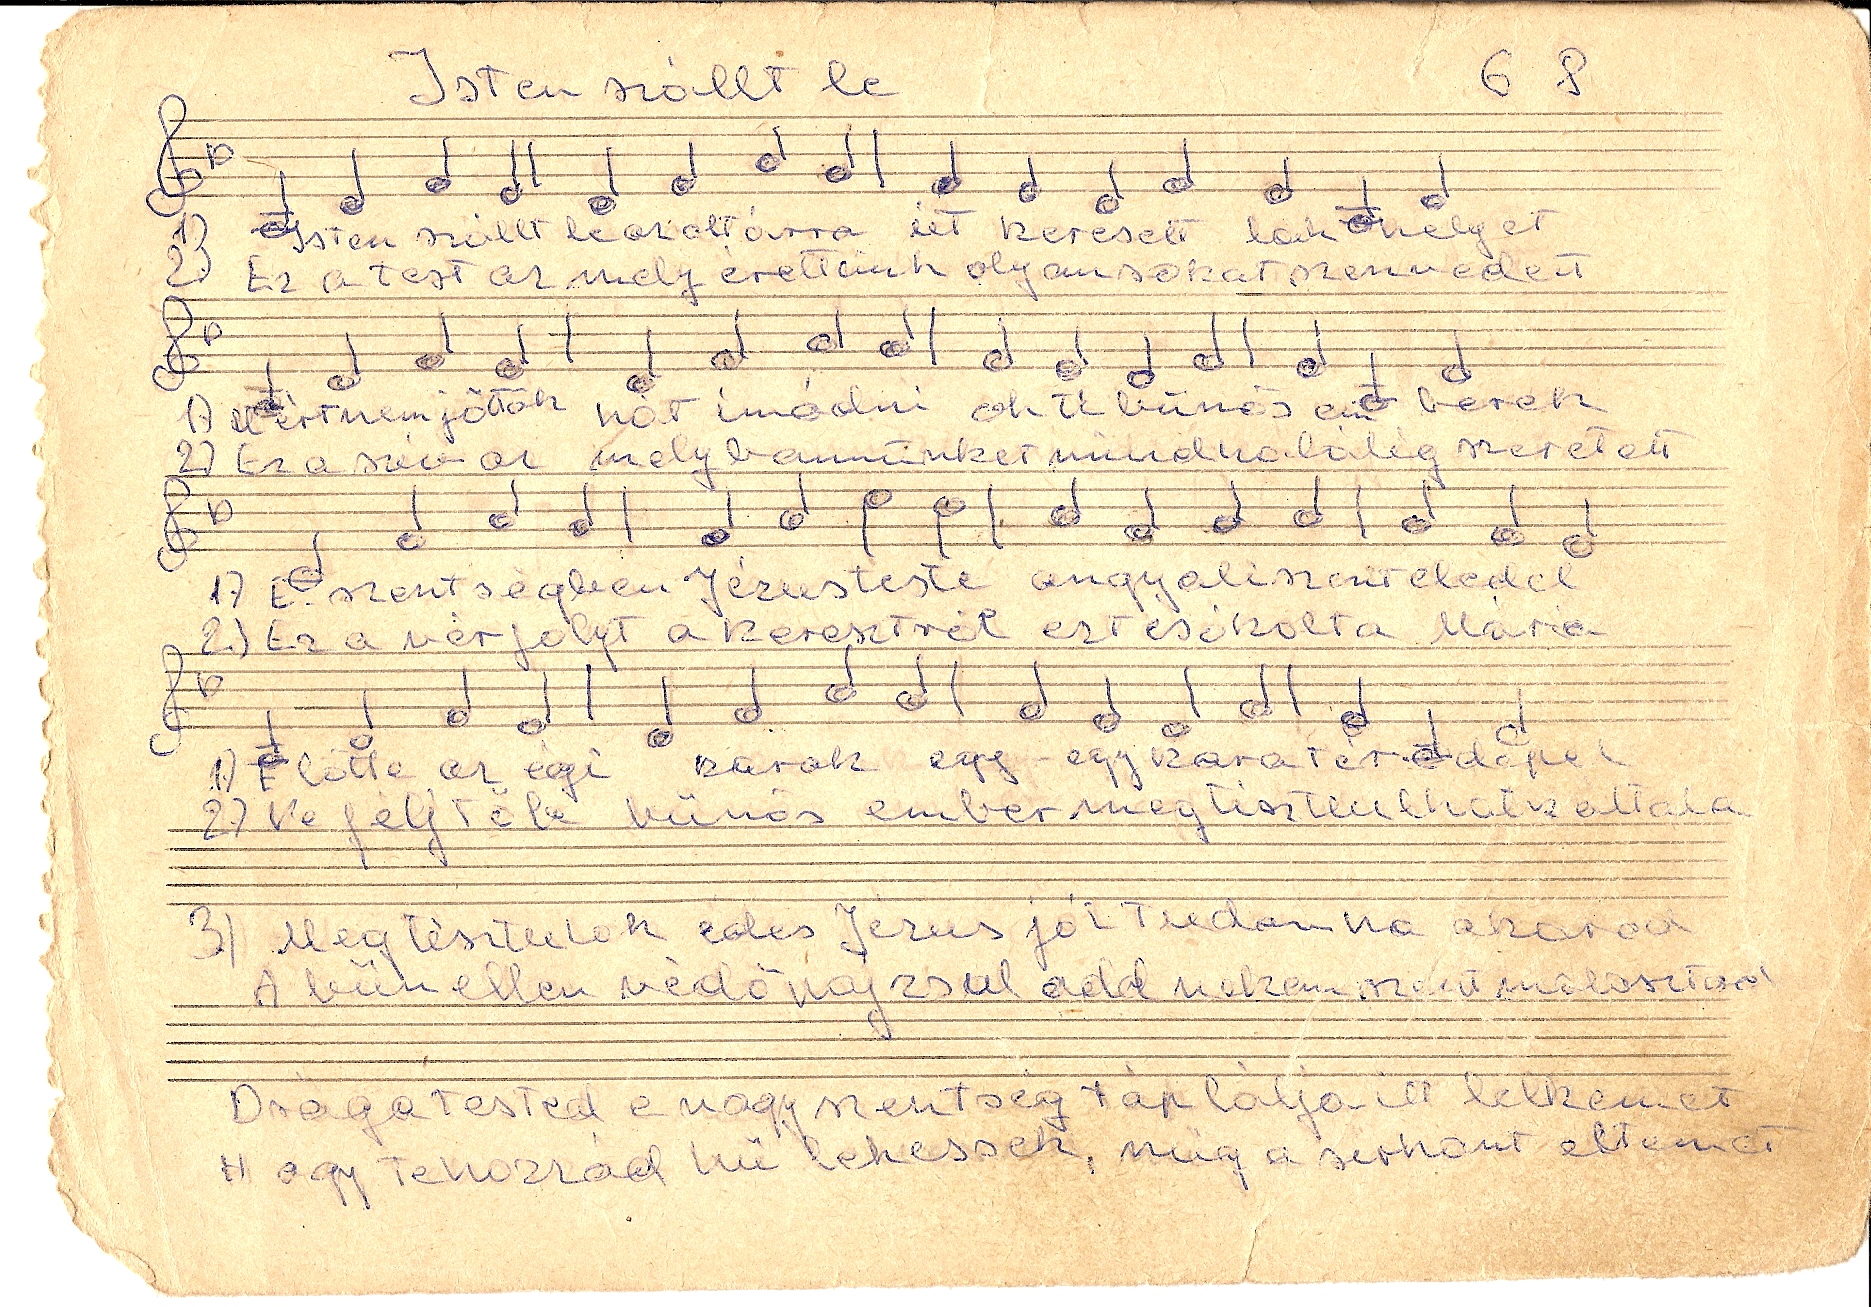 Isten szállt le 68
1) Isten szállt le az oltárra itt keresett lakóhelyet
2) Ez a test az mely érettünk olyan sokat szenvedett
1) Mért nem jöttök hát imádni oh ti bűnös emberek
2) Ez a szív az melyben minket mind halálig szeretett
1) E. szentségben Jézus teste angyali szent eledel
2.) Ez a vér folyt a keresztről ezt csókolta Mária
1) Előtte az égi károk egy-egy kara térdepel
2) Ne félj tőle bűnös ember megtisztulhatsz általa
3) Megtisztulok édes Jézus jól tudom ha akarod
A bűn ellen védőpajzsul add nekem szent malasztod
Drága tested e nagy szentség táplálja itt lelkemet
Hogy tehozzád hű lehessek, míg a sírhant eltemet